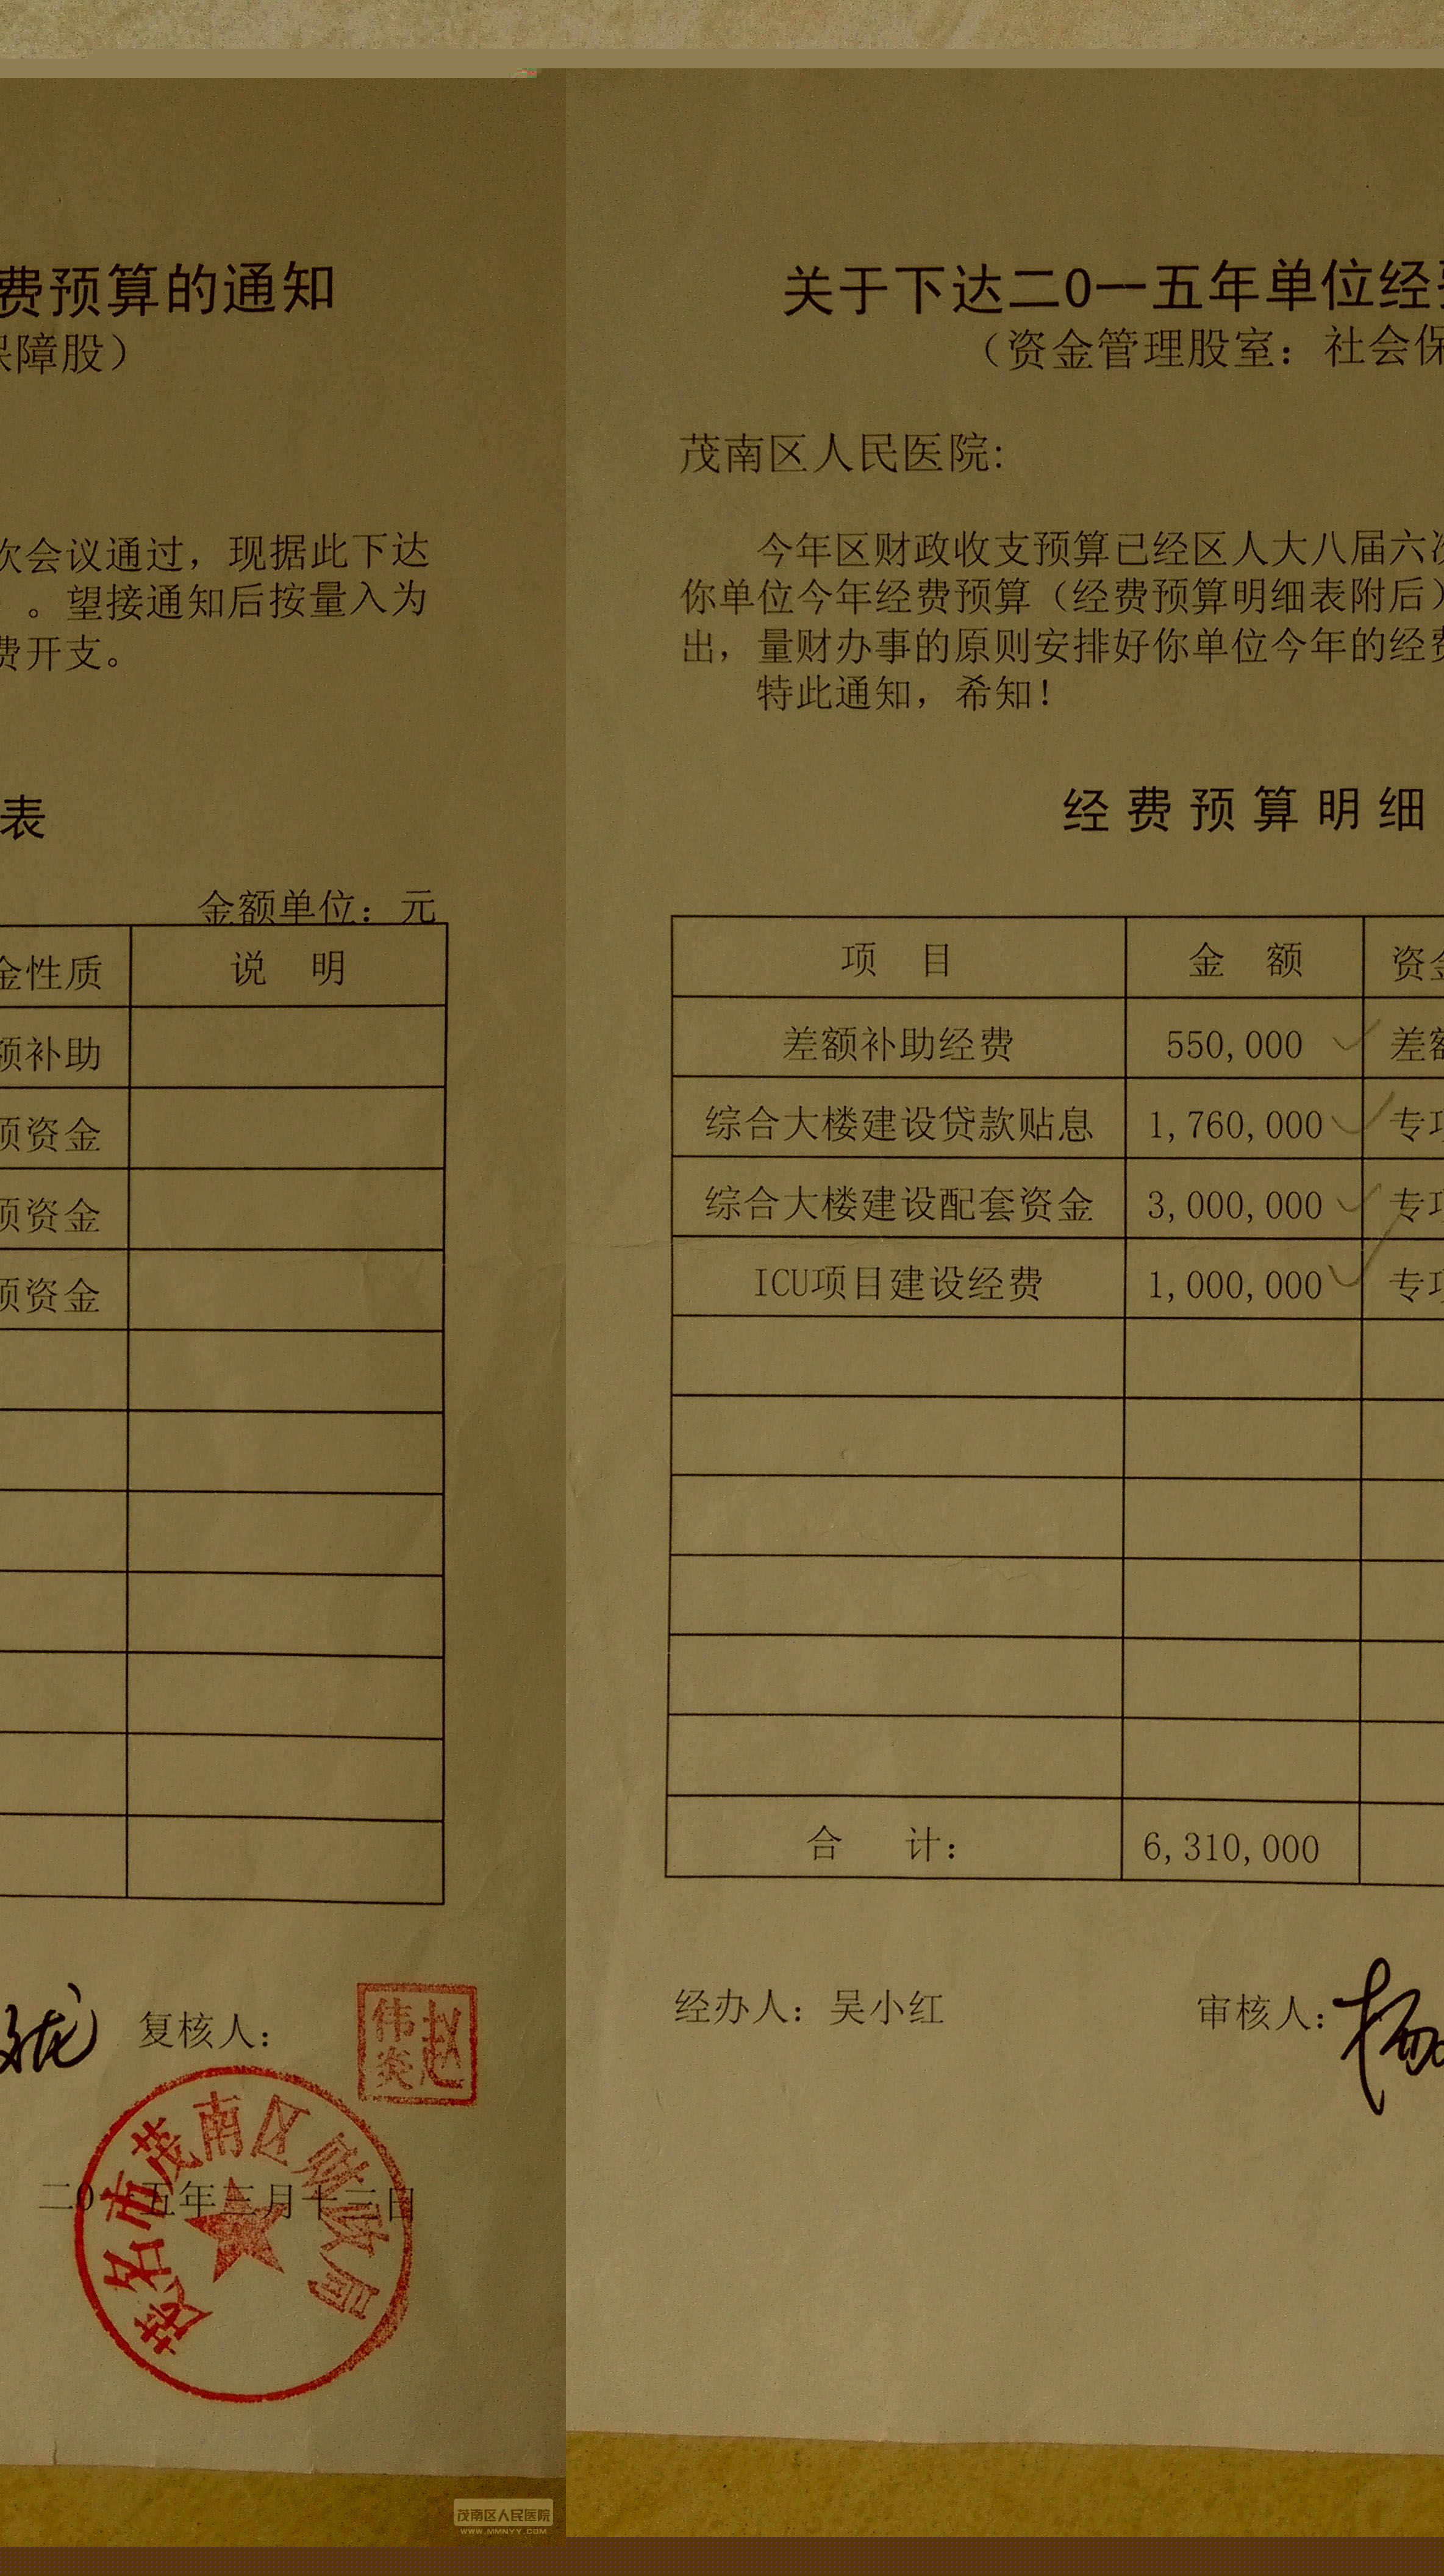 费预算的通知
保障股）
次会议通过，现据此下达
。望接通知后按量入为
费开支。
表
金额单位：元
金性质 说 明
额补助
项资金
项资金
项资金
复核人：
赵伟炎
茂名市茂南区财政局
二0一五年三月十二日
茂南区人民医院
WWW.MMNYY.COM
关于下达二0一五年单位经
（资金管理股室：社会保
茂南区人民医院:
今年区财政收支预算已经区人大八届六次
你单位今年经费预算（经费预算明细表附后）
出，量财办事的原则安排好你单位今年的经费
特此通知，希知！
经费预算明细
项 目 金 额 资金
差额补助经费 550,000 差额
综合大楼建设贷款贴息 1,760,000 专项
综合大楼建设配套资金 3,000,000 专项
ICU项目建设经费 1,000,000 专项
合 计： 6,310,000
经办人：吴小红 审核人：